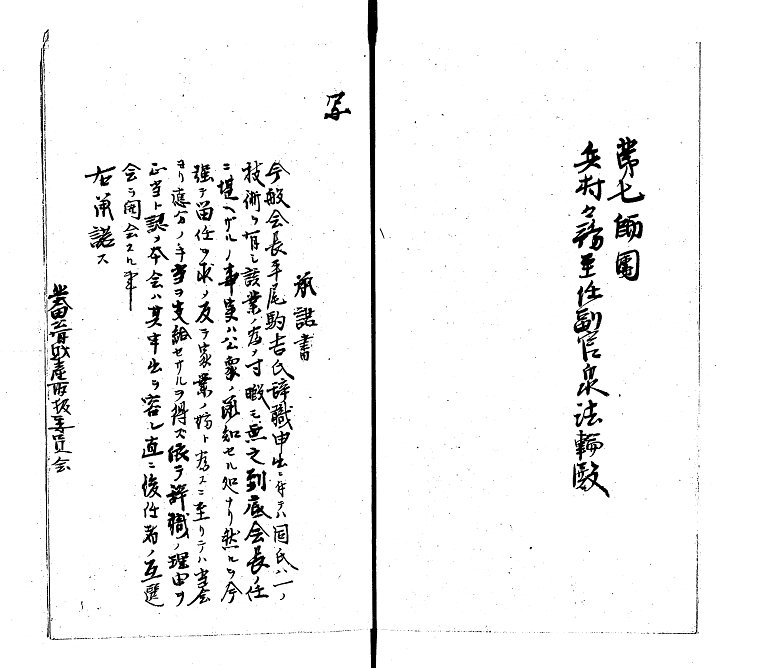 第七師團
兵村々務主任副官泉法輪殿
写
承諾書
今般会長平尾駒吉氏辞職申出ニ付テハ同氏ハ一ノ
技術ヲ有シ該業ノ為ノ寸暇モ無之到底会長ノ任
ニ堪ヘザルノ事実ハ公衆ノ承知セル処ナリ然ルヲ今
強テ留任ヲ求メ反テ家業ノ妨ト為スニ至リテハ当会
ヨリ應分ノ手当ヲ支給セサルヲ得ズ依テ辞職ノ理由ヲ
正当ト認メ本会ハ其申出ヲ容レ直ニ後任者ノ互選
会ヲ開会スル事
右承諾ス
財産取扱委員会